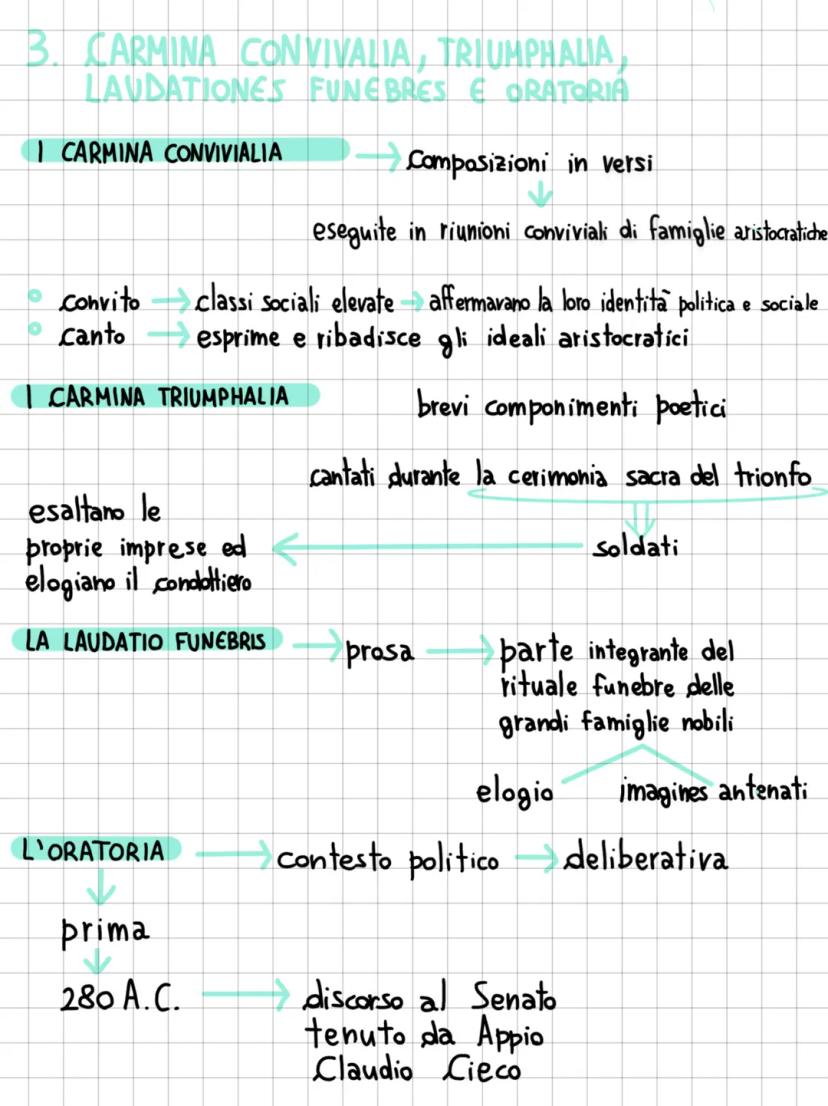 3. CARMINA CONVIVALIA, TRIUMPHALIA,
LAUDATIONES FUNEBRES E ORATORIA
I CARMINA CONVIVIALIA → Composizioni in versi
↓
eseguite in riunioni conviviali di famiglie aristocratiche
◦ convito → classi sociali elevate → affermavano la loro identità politica e sociale
◦ canto → esprime e ribadisce gli ideali aristocratici
I CARMINA TRIUMPHALIA brevi componimenti poetici
cantati durante la cerimonia sacra del trionfo
soldati
esaltano le
proprie imprese ed
elogiano il condottiero
LA LAUDATIO FUNEBRIS → prosa → parte integrante del
rituale funebre delle
grandi famiglie nobili
elogio imagines antenati
L'ORATORIA → contesto politico → deliberativa
↓
prima
↓
280 A.C. → discorso al Senato
tenuto da Appio
Claudio Cieco